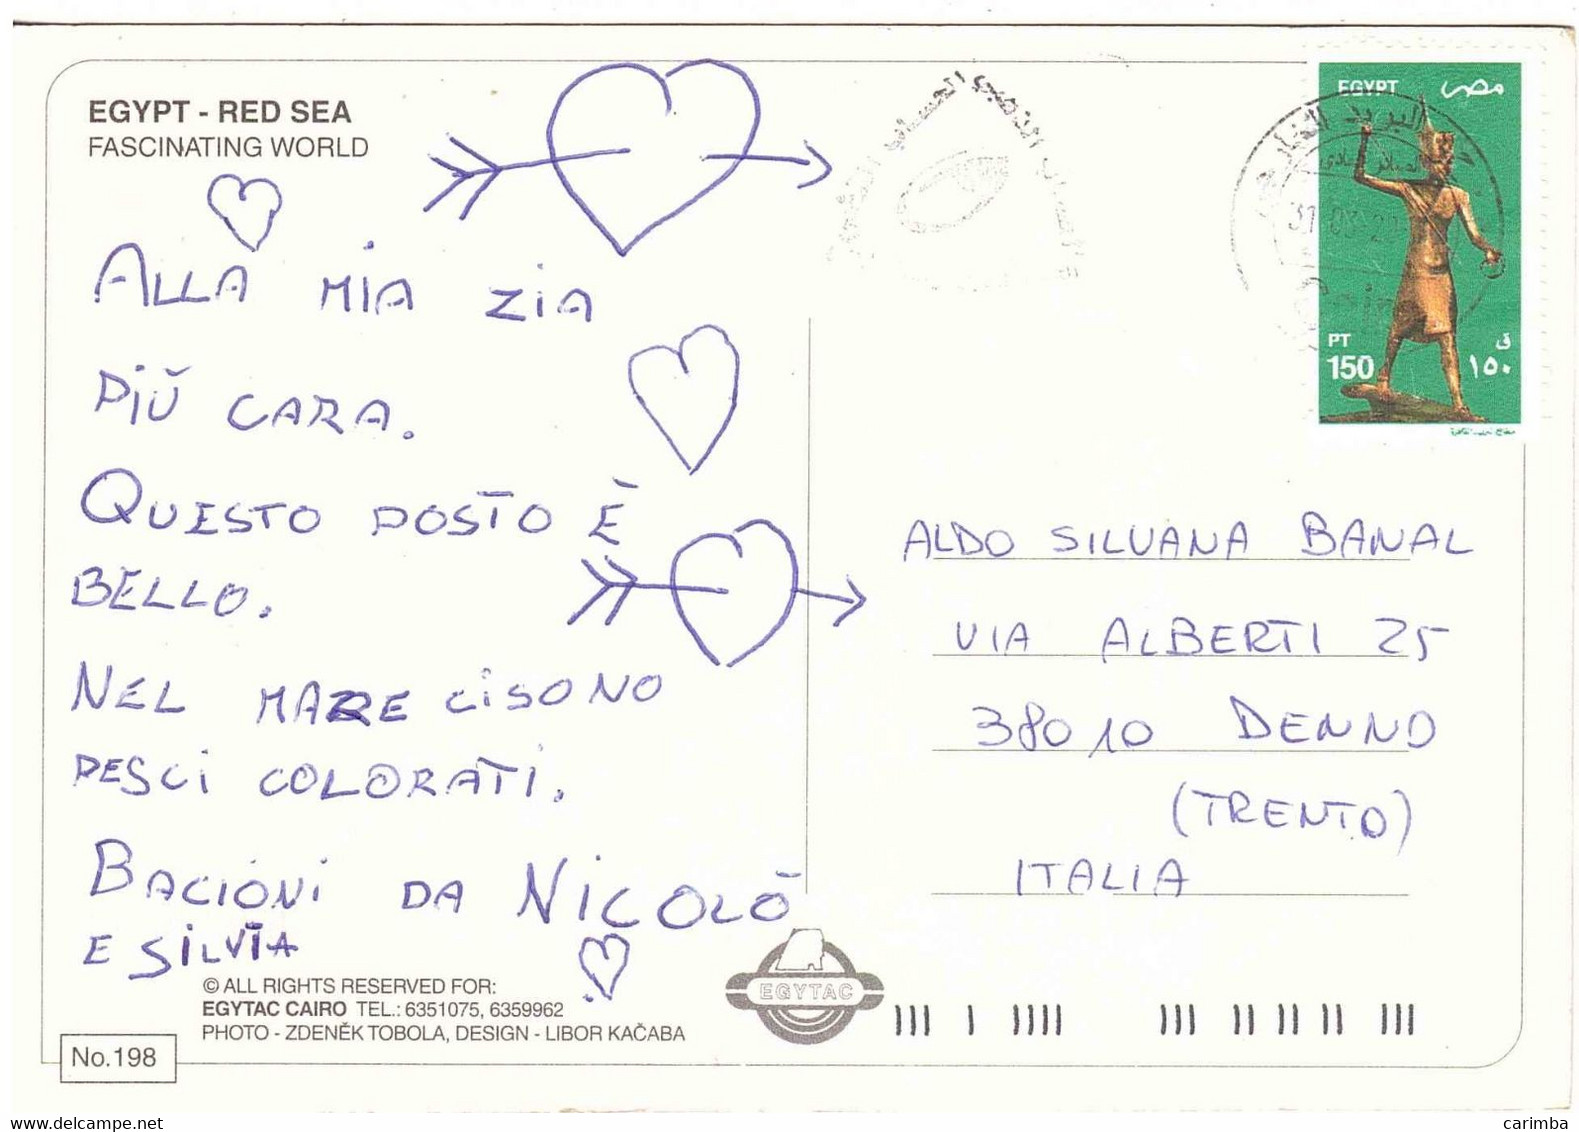 EGYPT - RED SEA
FASCINATING WORLD
ALLA MIA ZIA
PIÙ CARA.
QUESTO POSTO È
BELLO.
NEL MARE CI SONO
PESCI COLORATI.
BACIONI DA NICOLÒ
E SILVIA
© ALL RIGHTS RESERVED FOR:
EGYTAC CAIRO TEL.: 6351075, 6359962
PHOTO - ZDENĚK TOBOLA, DESIGN - LIBOR KAČABA
No.198
EGYTAC
EGYPT مصر
PT ق
150 ١٥٠
البريد
Cairo
ALDO SILVANA BANAL
VIA ALBERTI 25
38010 DENNO
(TRENTO)
ITALIA
carimba